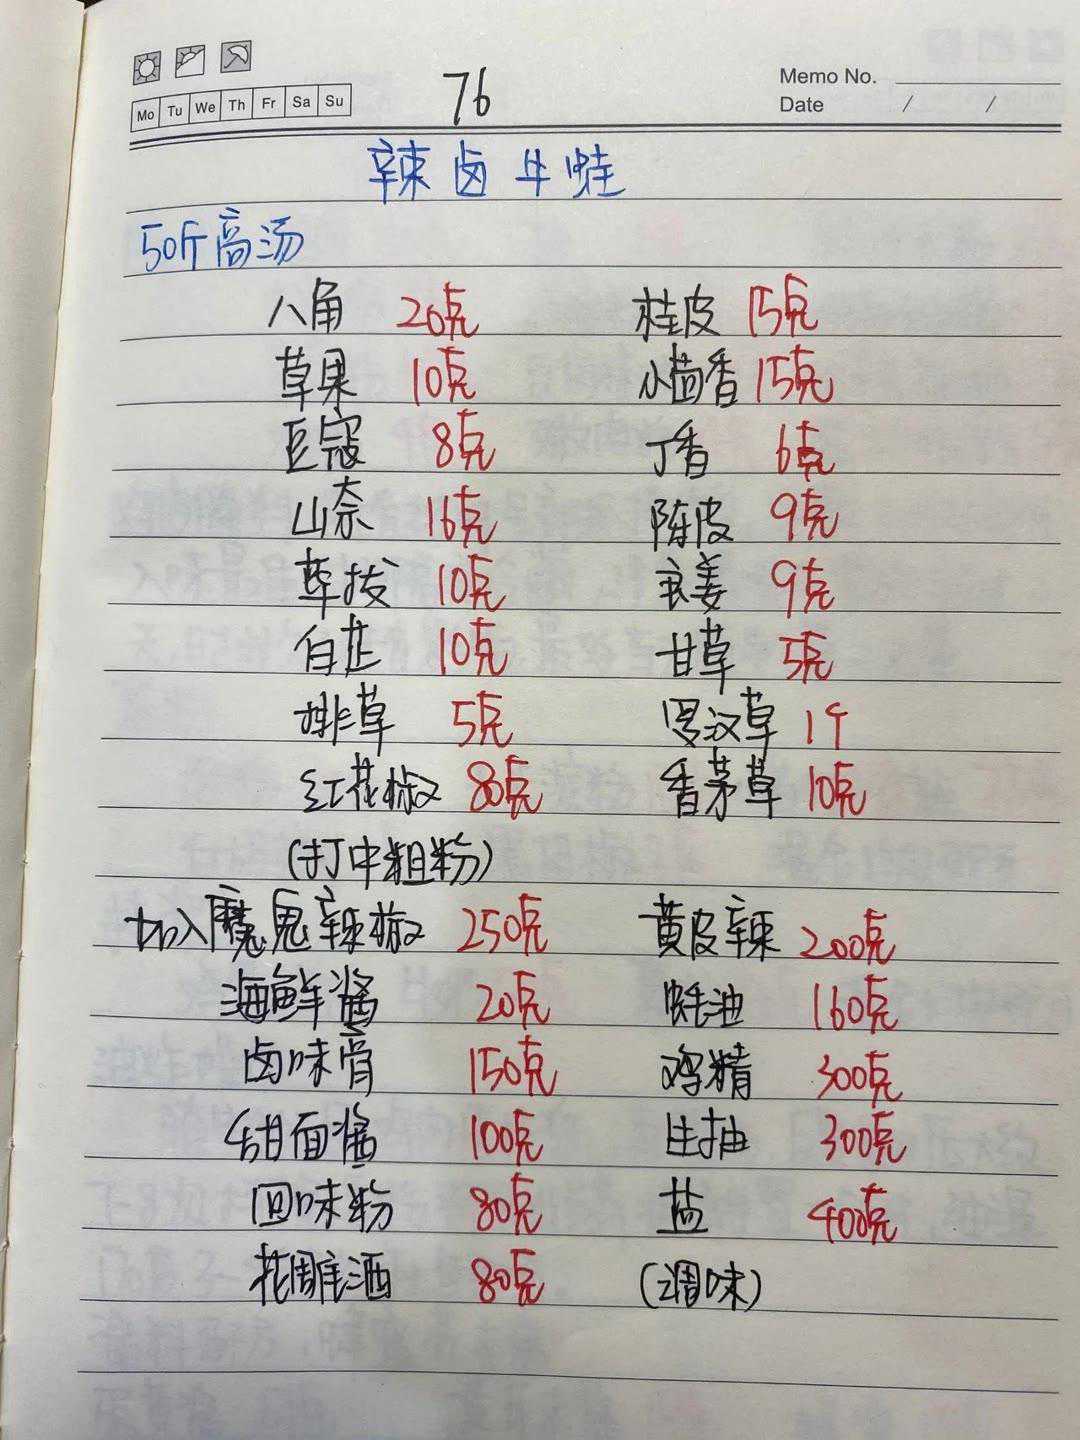 Mo Tu We Th Fr Sa Su
76
Memo No.
Date / /
辣卤牛蛙
50斤高汤
八角 20克 桂皮 15克
草果 10克 小茴香 15克
豆寇 8克 丁香 6克
山奈 16克 陈皮 9克
荜拔 10克 良姜 9克
白芷 10克 甘草 5克
排草 5克 罗汉草 1个
红花椒 80克 香茅草 10克
(打中粗粉)
加入魔鬼辣椒 250克 黄皮辣 200克
海鲜酱 20克 蚝油 160克
卤味膏 150克 鸡精 300克
甜面酱 100克 生抽 300克
回味粉 80克 盐 400克
花雕酒 80克 (调味)